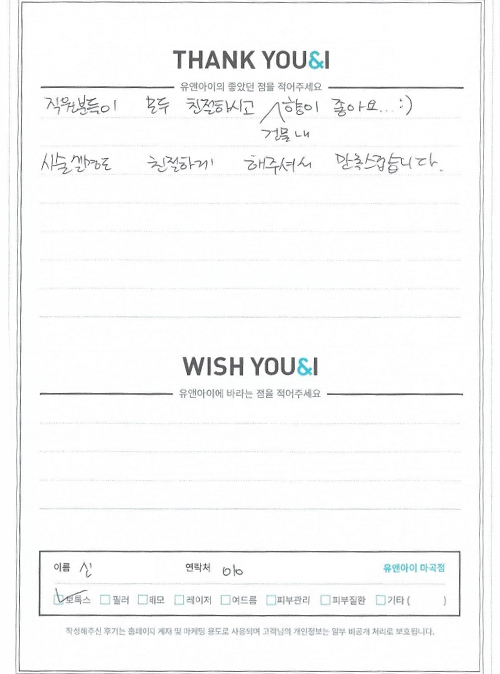 THANK YOU&I
유앤아이의 좋았던 점을 적어주세요
직원분들이 모두 친절하시고 건물 내 향이 좋아요...:)
시술설명도 친절하게 해주셔서 만족스럽습니다.
WISH YOU&I
유앤아이에 바라는 점을 적어주세요
이름 신 연락처 010 유앤아이 마곡점
보톡스 필러 제모 레이저 여드름 피부관리 피부질환 기타 ( )
작성해주신 후기는 홈페이지 게재 및 마케팅 용도로 사용되며 고객님의 개인정보는 일부 비공개 처리로 보호됩니다.